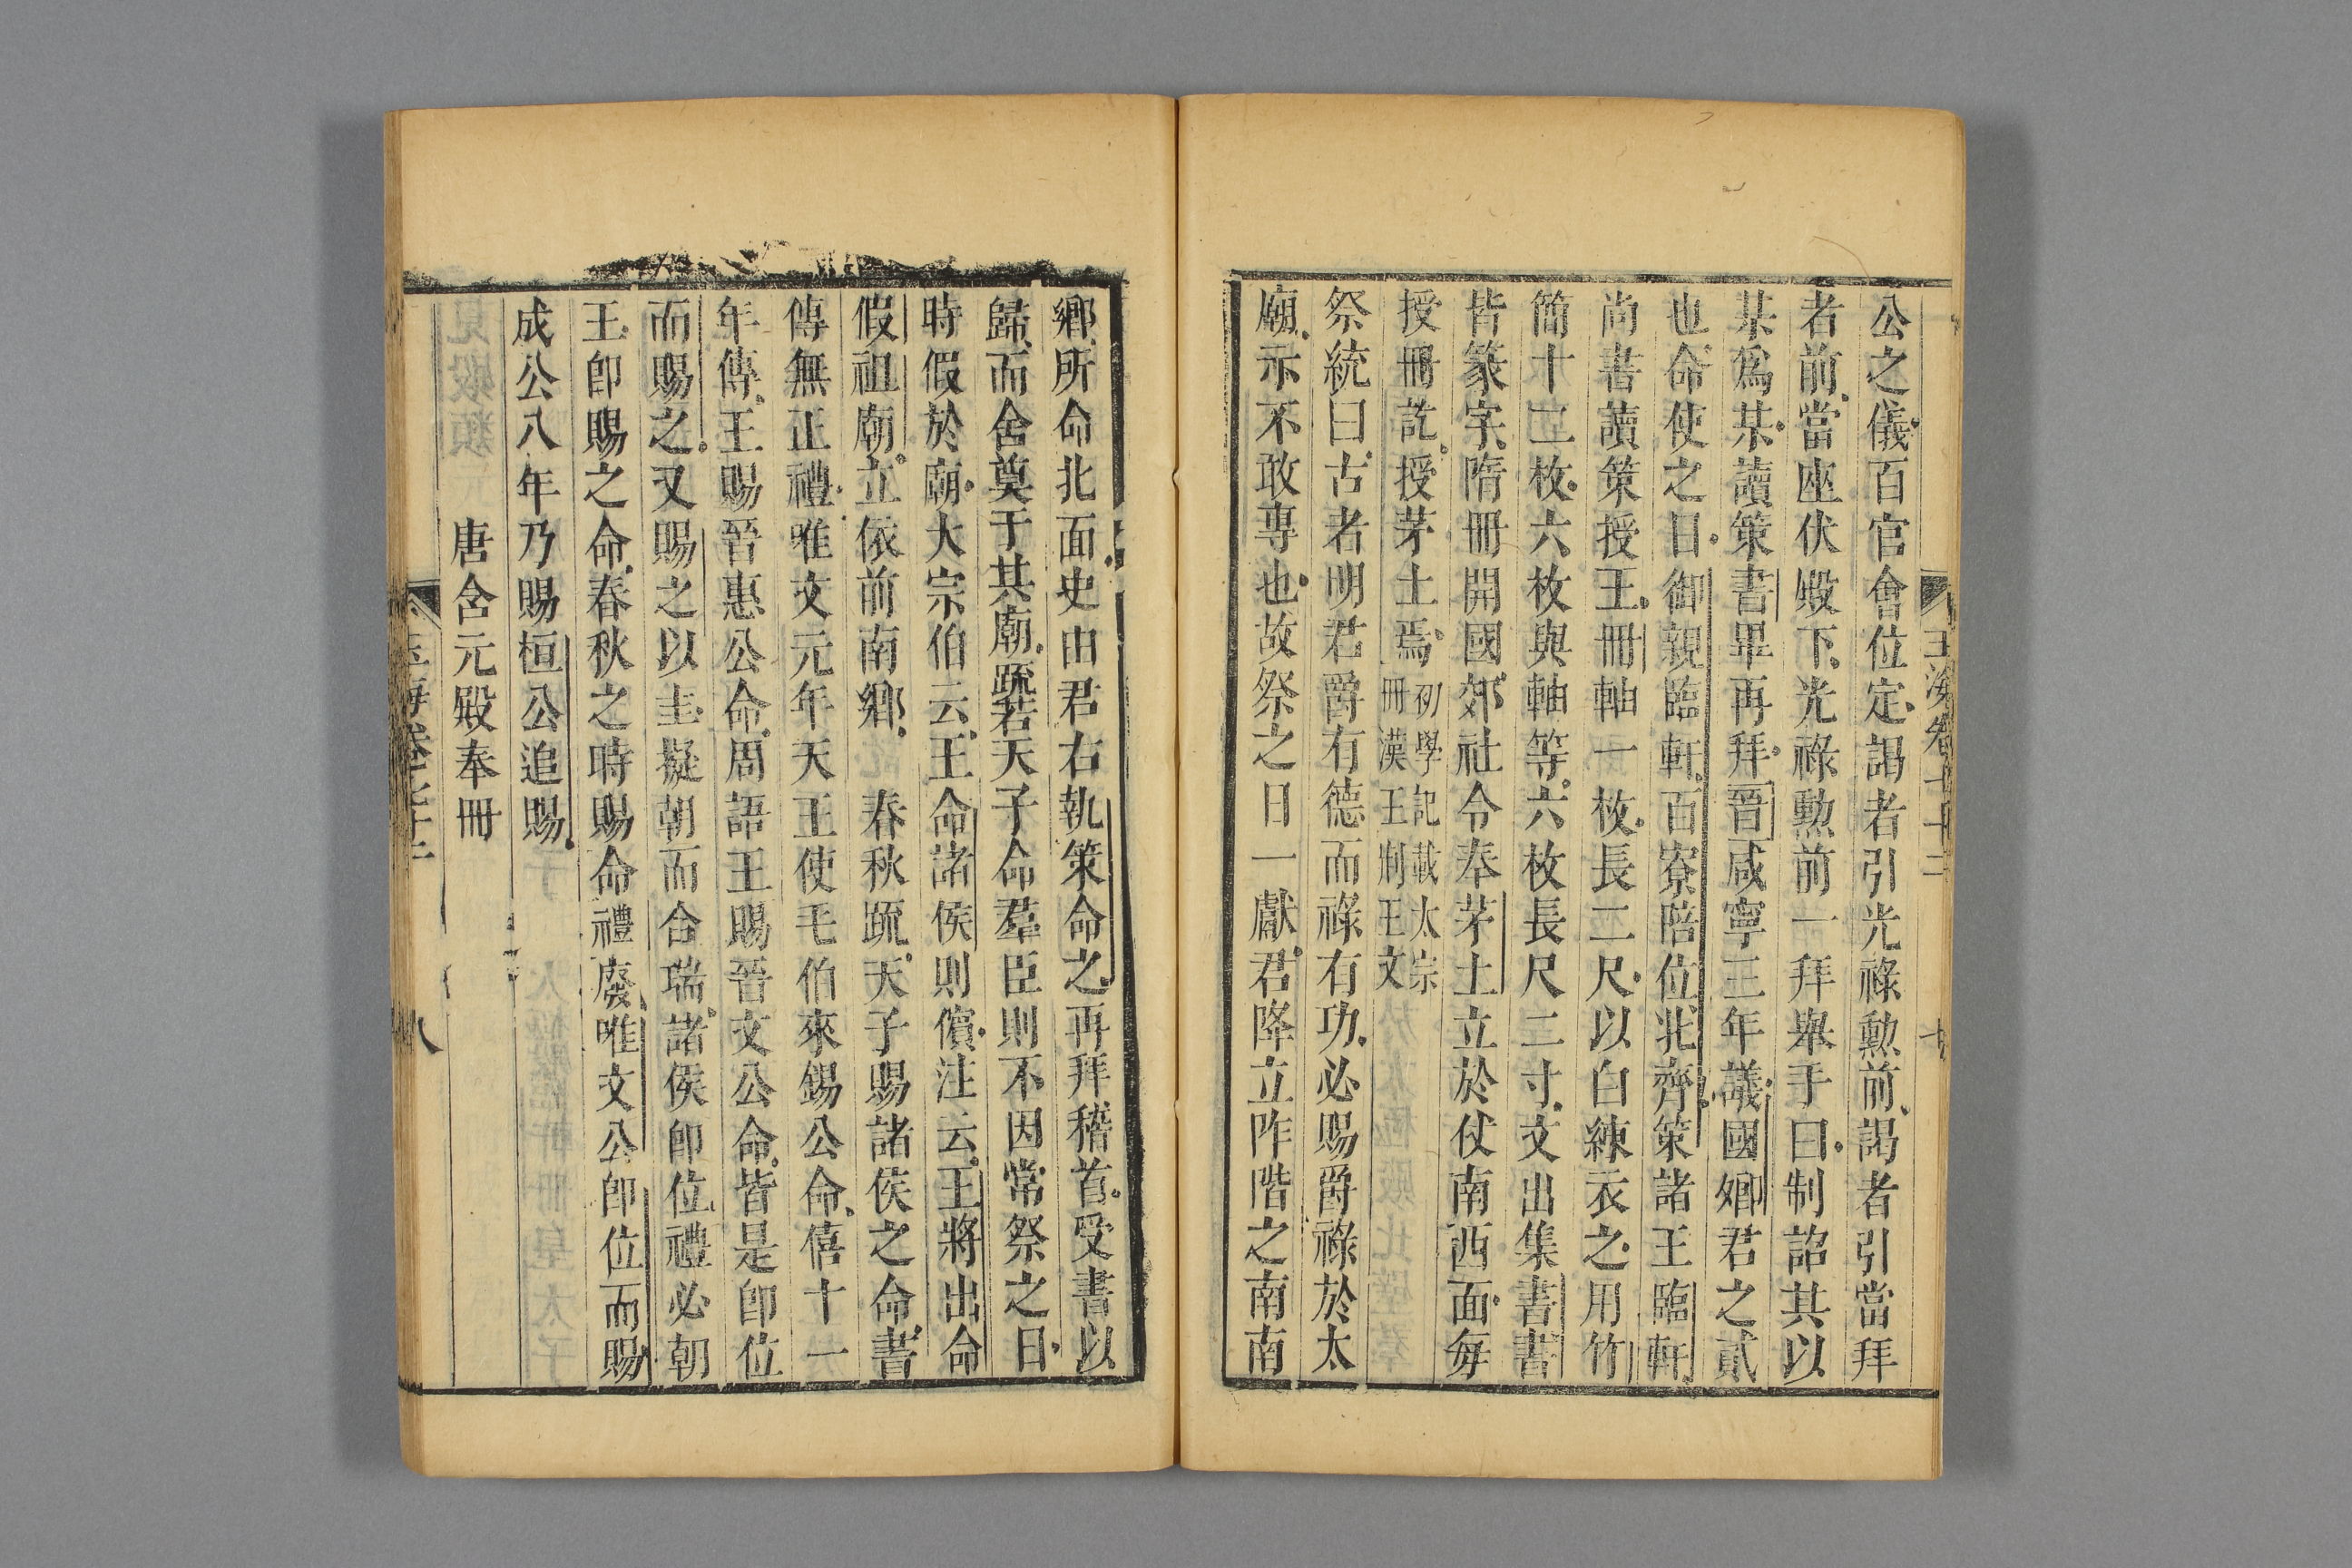 公之儀百官會位定謁者引光祿勲前謁者引當拜
者前當座伏殿下光祿勲前一拜舉手曰制詔其以
某爲某讀策書畢再拜晉咸寧三年議國嫏君之貳
也命使之日御親臨軒百寮陪位北齊策諸王臨軒
尚書讀策授王冊軸一枚長二尺以白練衣之用竹
簡十二枚六枚與軸等六枚長尺二寸文出集書書
皆篆字隋冊開國郊社令奉茅土立於仗南西面每
授冊訖授茅土焉初學記載太宗冊漢王荆王文
祭統曰古者明君爵有德而祿有功必賜爵祿於太
廟示不敢專也故祭之日一獻君降立阼階之南南
鄉所命北面史由君右執策命之再拜稽首受書以
歸而舍奠于其廟疏若天子命羣臣則不因常祭之日
時假於廟大宗伯云王命諸侯則儐注云王將出命
假祖廟立依前南鄉 春秋疏天子賜諸侯之命書
傳無正禮唯文元年天王使毛伯來錫公命僖十一
年傳王賜晉惠公命周語王賜晉文公命皆是卽位
而賜之又賜之以圭擬朝而合瑞諸侯卽位禮必朝
王卽賜之命春秋之時賜命禮廢唯文公卽位而賜
成公八年乃賜桓公追賜
唐含元殿奉冊
八